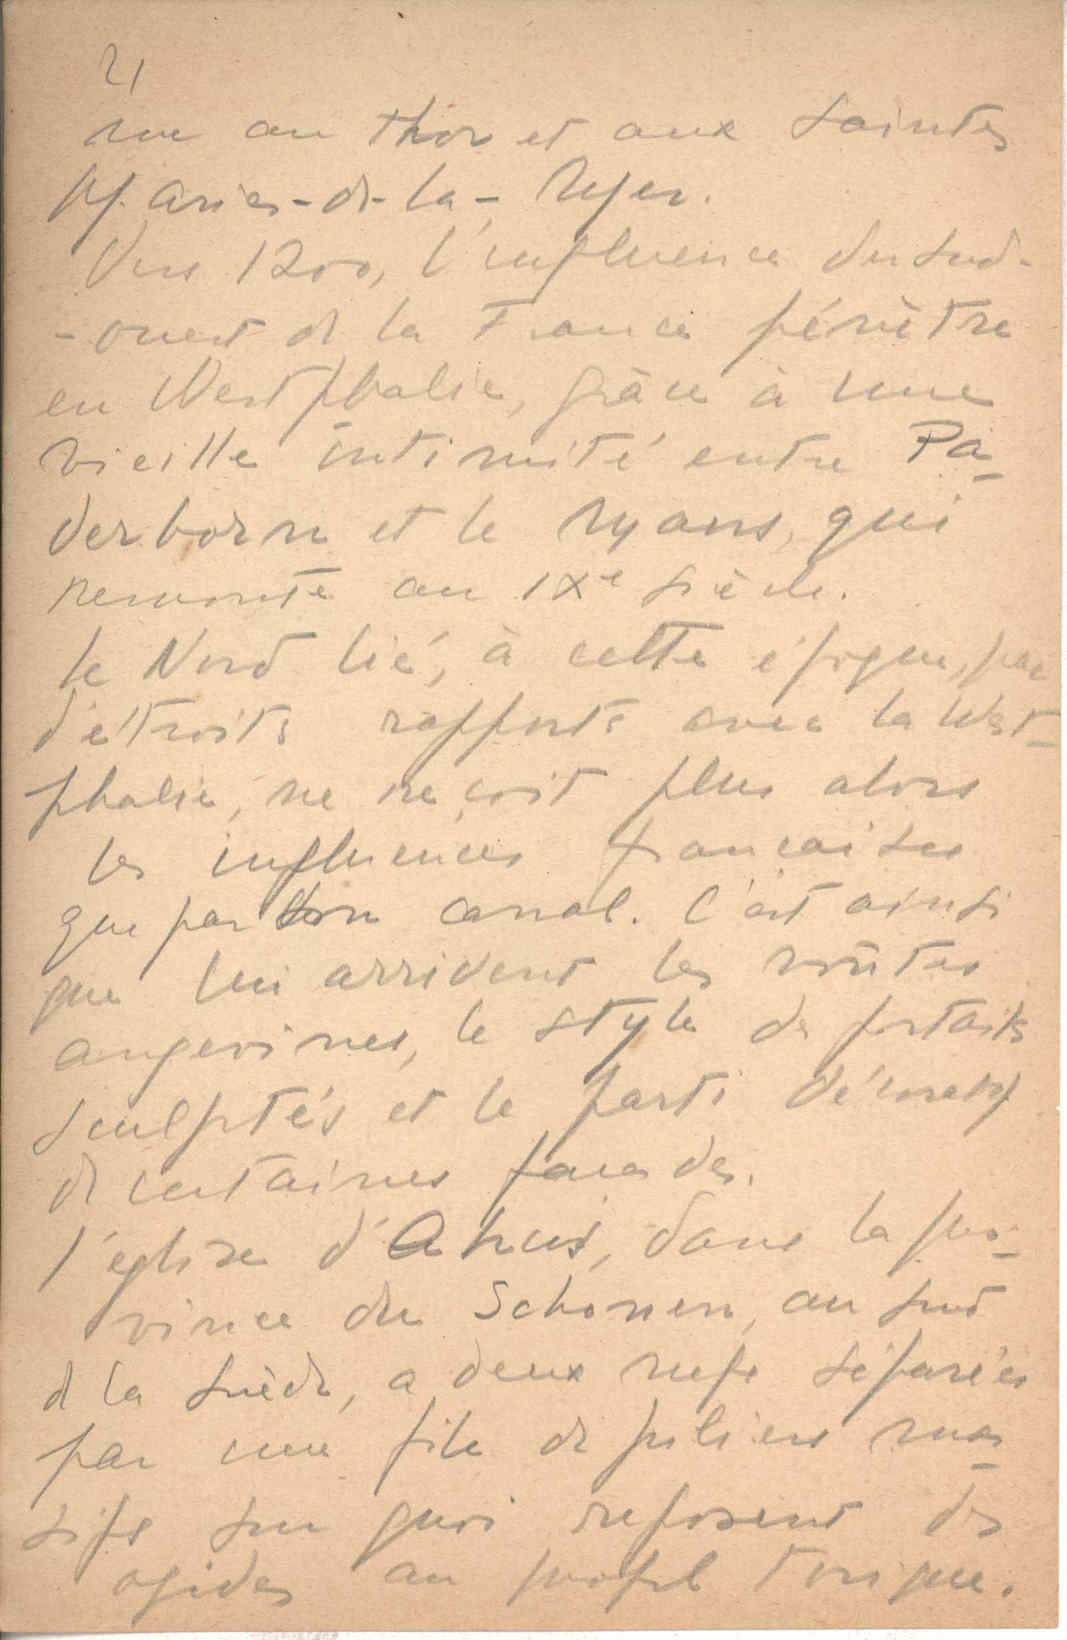 21
rue au Thor et aux Saintes
Maries-de-la-Mer.
Vers 1200, l'influence du Sud-
-ouest de la France pénètre
en Westphalie, grâce à une
vieille intimité entre Pa-
derborn et le Mans, qui
remonte au IXe siècle.
Le Nord lié, à cette époque, par
d'étroits rapports avec la West-
phalie, ne reçoit plus alors
les influences françaises
que par son canal. C'est ainsi
que lui arrivent les voûtes
angevines, le style de portails
sculptés et le parti décoratif
de certaines façades.
L'église d'Ahus, dans la pro-
vince de Schonen, au sud
de la Suède, a deux nefs séparées
par une file de piliers mas-
sifs sur quoi reposent des
ogives au profil torique.